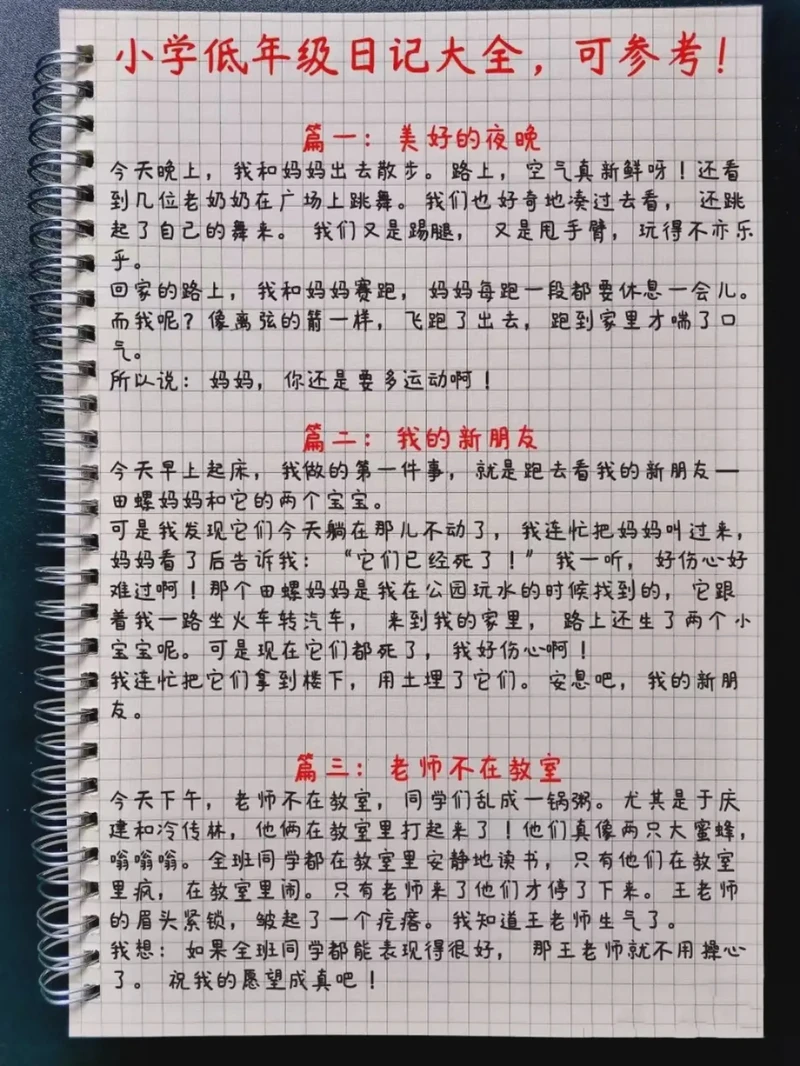 小学低年级日记大全，可参考！
篇一：美好的夜晚
今天晚上，我和妈妈出去散步。路上，空气真新鲜呀！还看
到几位老奶奶在广场上跳舞。我们也好奇地凑过去看，还跳
起了自己的舞来。我们又是踢腿，又是甩手臂，玩得不亦乐
乎。
回家的路上，我和妈妈赛跑，妈妈每跑一段都要休息一会儿。
而我呢？像离弦的箭一样，飞跑了出去，跑到家里才喘了口
气。
所以说：妈妈，你还是要多运动啊！
篇二：我的新朋友
今天早上起床，我做的第一件事，就是跑去看我的新朋友—
田螺妈妈和它的两个宝宝。
可是我发现它们今天躺在那儿不动了，我连忙把妈妈叫过来，
妈妈看了后告诉我：“它们已经死了！”我一听，好伤心好
难过啊！那个田螺妈妈是我在公园玩水的时候找到的，它跟
着我一路坐火车转汽车，来到我的家里，路上还生了两个小
宝宝呢。可是现在它们都死了，我好伤心啊！
我连忙把它们拿到楼下，用土埋了它们。安息吧，我的新朋
友。
篇三：老师不在教室
今天下午，老师不在教室，同学们乱成一锅粥。尤其是于庆
建和冷传林，他俩在教室里打起来了！他们真像两只大蜜蜂，
嗡嗡嗡。全班同学都在教室里安静地读书，只有他们在教室
里疯，在教室里闹。只有老师来了他们才停了下来。王老师
的眉头紧锁，皱起了一个疙瘩。我知道王老师生气了。
我想：如果全班同学都能表现得很好，那王老师就不用操心
了。祝我的愿望成真吧！